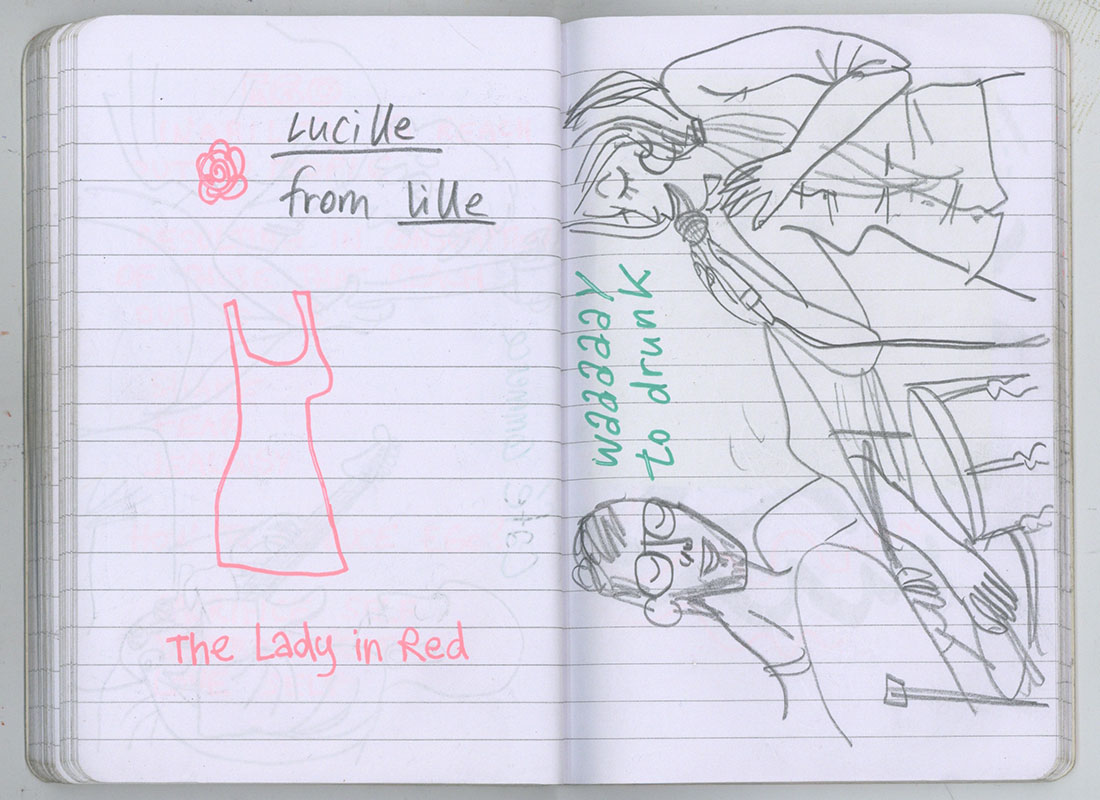 Lucille
from Lille
The Lady in Red
waaaaaay
to drunk